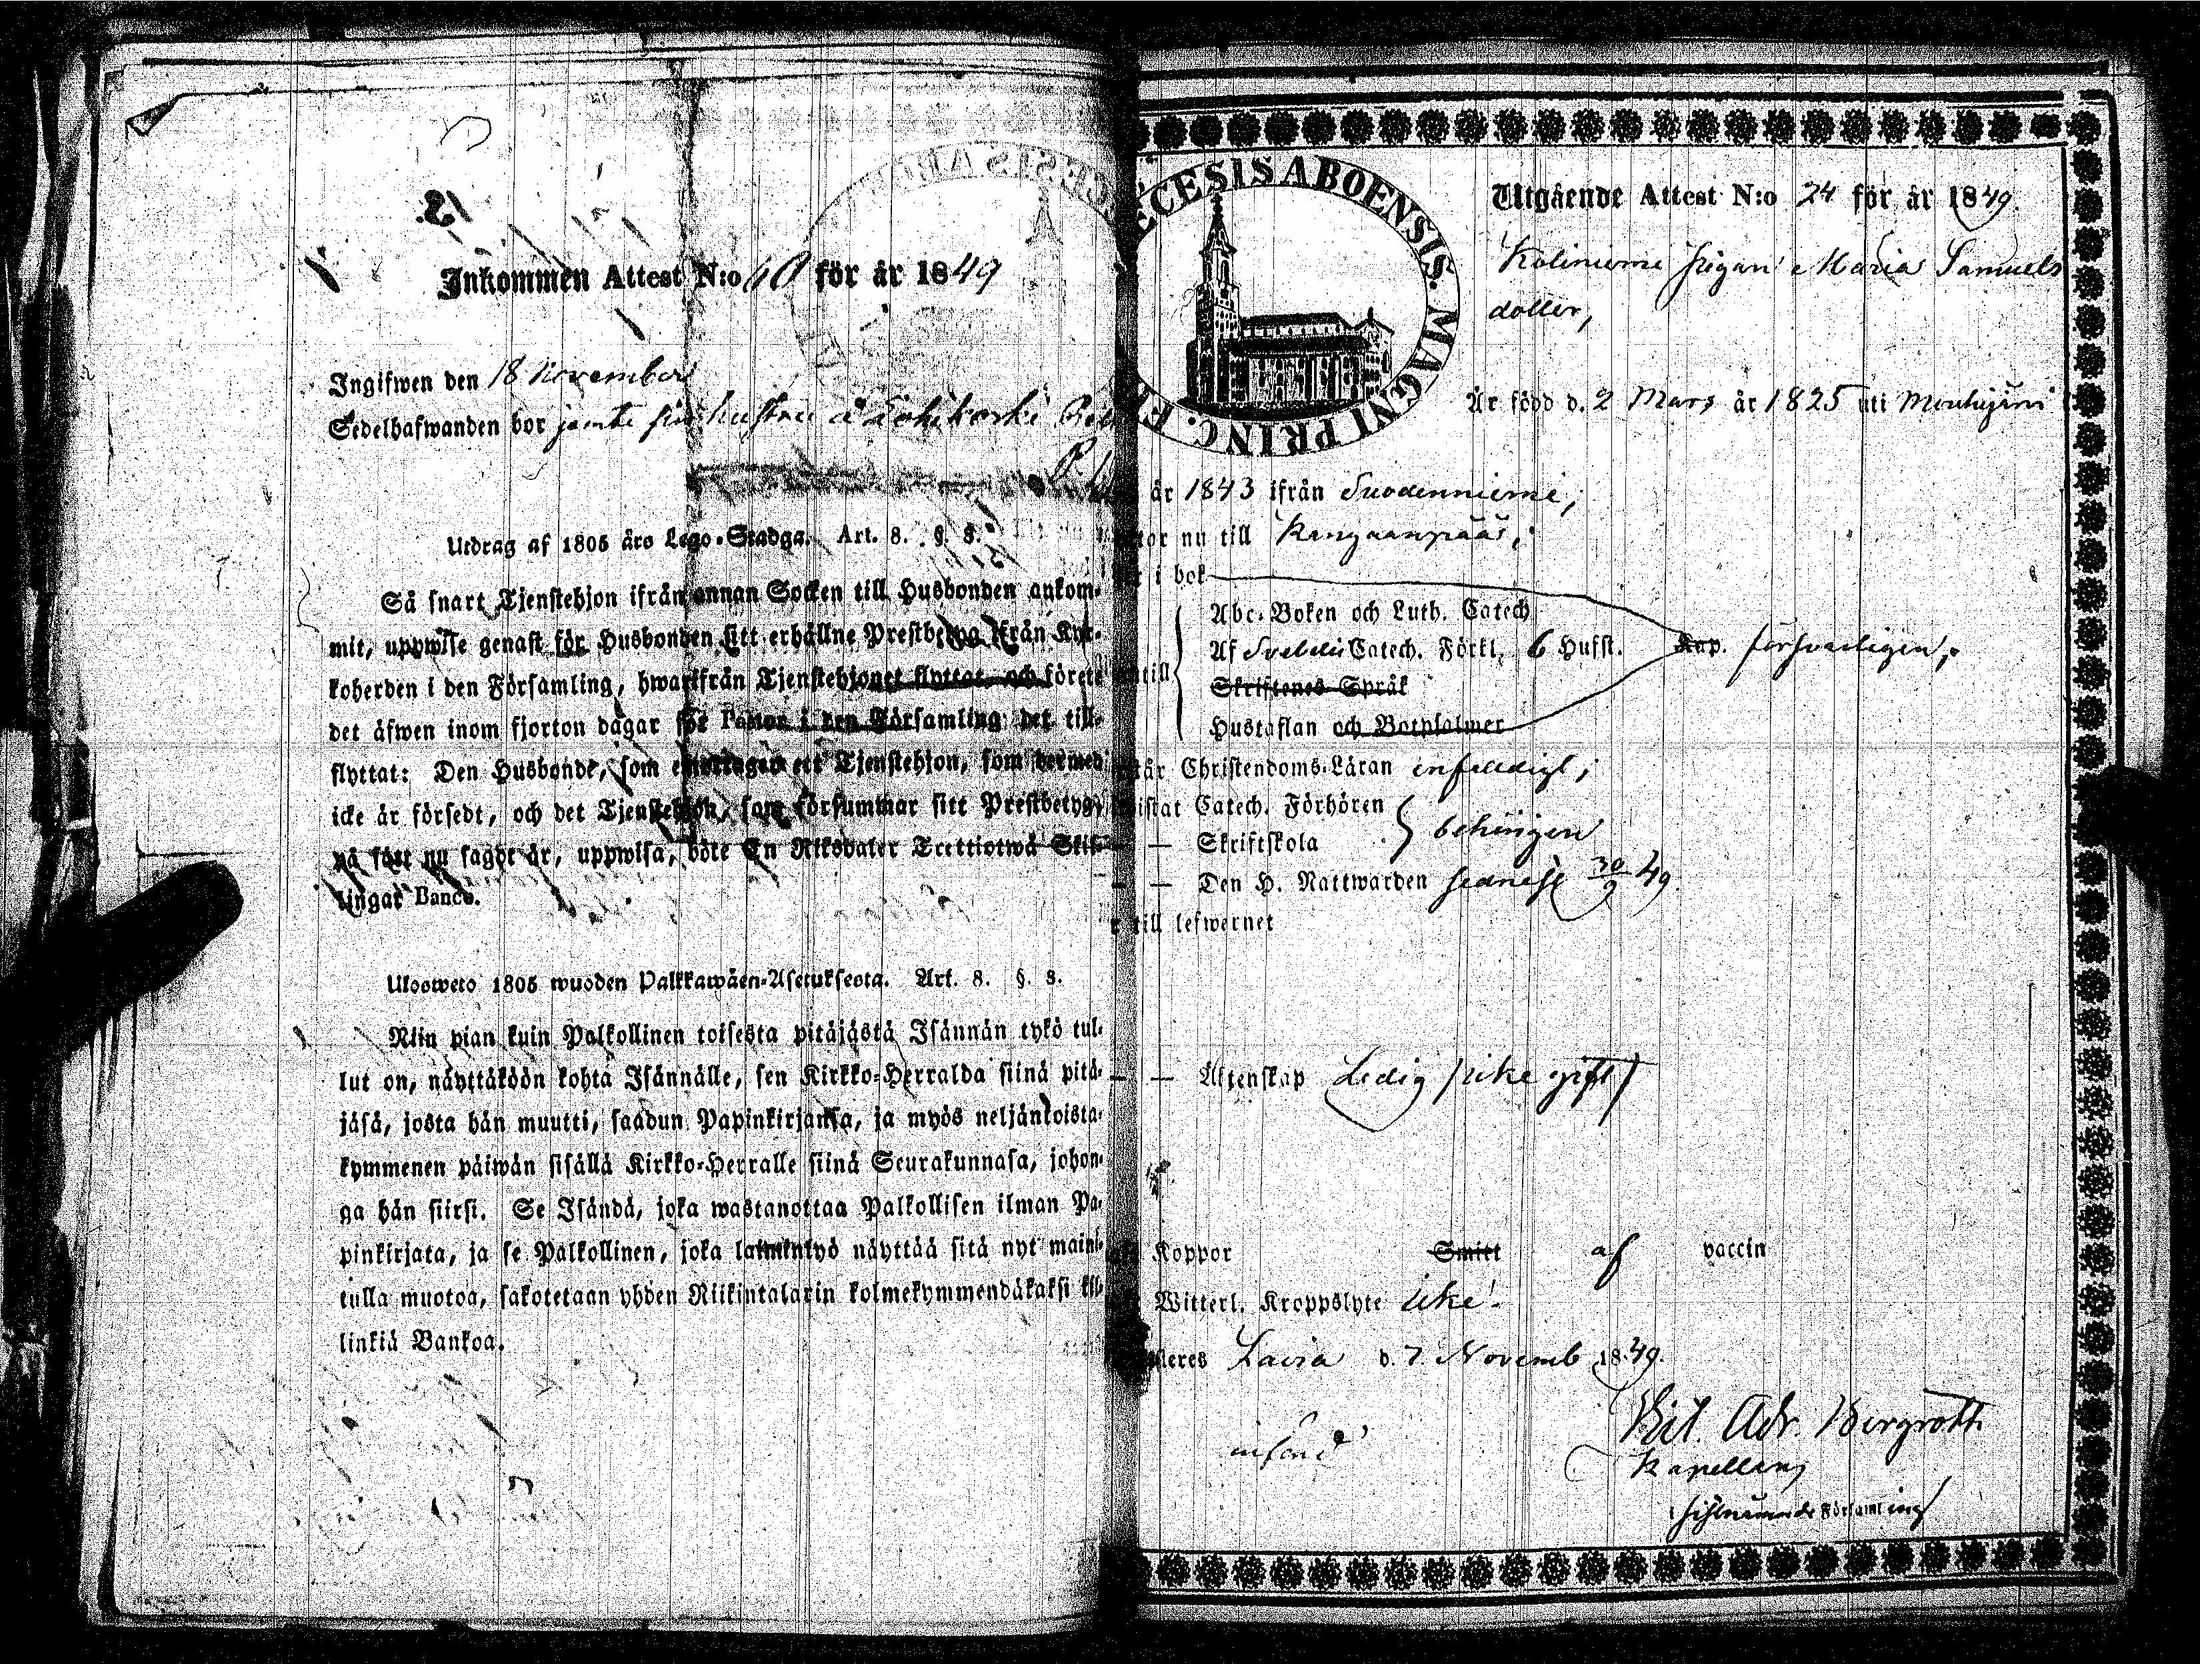 Inkommen Attest N:o 60 för år 1849
Ingifwen den 18 November
Sedelhafwanden bor jemte sin hustru å
Utdrag af 1805 års Lego-Stadga. Art. 8. §. 8.
Så snart Tjenstehjon ifrån annan Socken till Husbonden ankom-
mit, uppwise genast för Husbonden sitt erhållne Prestbetyg ifrån Kyr-
koherden i den Församling, hwarifrån Tjenstehjonet flyttat, och förete
det äfwen inom fjorton dagar för Pastor i den Församling det till-
flyttat: Den Husbonde, som emottager ett Tjenstehjon, som dermed
icke är försedt, och det Tjenstehjon, som försummar sitt Prestbetyg,
på sätt nu sagdt är, uppwisa, böte En Riksdaler Trettiotwå Skil-
lingar Banco.
Ulosweto 1805 wuoden Palkkawäen-Asetuksesta. Art. 8. §. 8.
Niin pian kuin Palkollinen toisesta pitäjästä Isännän tykö tul-
lut on, näyttäköön kohta Isännälle, sen Kirkko-Herralda siinä pitä-
jäsä, josta hän muutti, saadun Papinkirjansa, ja myös neljäntoista-
kymmenen päiwän sisällä Kirkko-Herralle siinä Seurakunnasa, johon-
ga hän siirsi. Se Isändä, joka wastanottaa Palkollisen ilman Pa-
pinkirjata, ja se Palkollinen, joka laiminlyö näyttää sitä nyt maini-
tulla muotoa, sakotetaan yhden Riikintalarin kolmekymmendäkaksi kil-
linkiä Bankoa.
ECESIS ABOENSIS. MAGNI PRINC. F
Utgående Attest N:o 24 för år 1849.
Pigan Maria Samuels
dotter,
Är född d. 2 Mars år 1825 uti Mouhijärvi
år 1843 ifrån Suodenniemi,
tor nu till Kangaanpää,
i bok
Abc-Boken och Luth. Catech
Af Svebelii Catech. Förkl. 6 Hufst. Kap. försvarligen,
till
Skriftenes Språk
Hustaflan och Botpsalmer
tår Christendoms-Läran enfaldigt,
istat Catech. Förhören
— Skriftskola behörigen
— — Den H. Nattwarden senast 30/9 49.
r till lefwernet
— — Äktenskap Ledig (icke gift)
Koppor Smitt af vaccin
Witterl. Kroppslyte icke.
steres Lavia d. 7 Novemb 1849.
införd
Adr. Bergroth
Kapellan
Församling